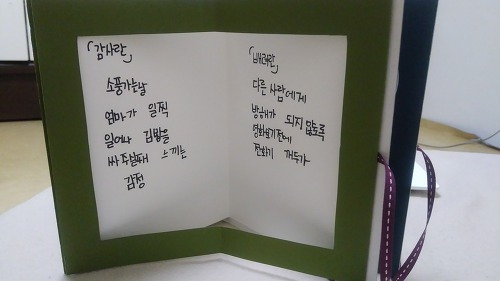 (감사란)
소풍가는날
엄마가 일찍
일어나 김밥을
싸주실때 느끼는
감정
(배려란)
다른 사람에게
방해가 되지 않도록
영화보기전에
전화기 꺼두기